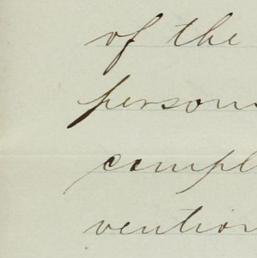 of the
persons
compl
vention